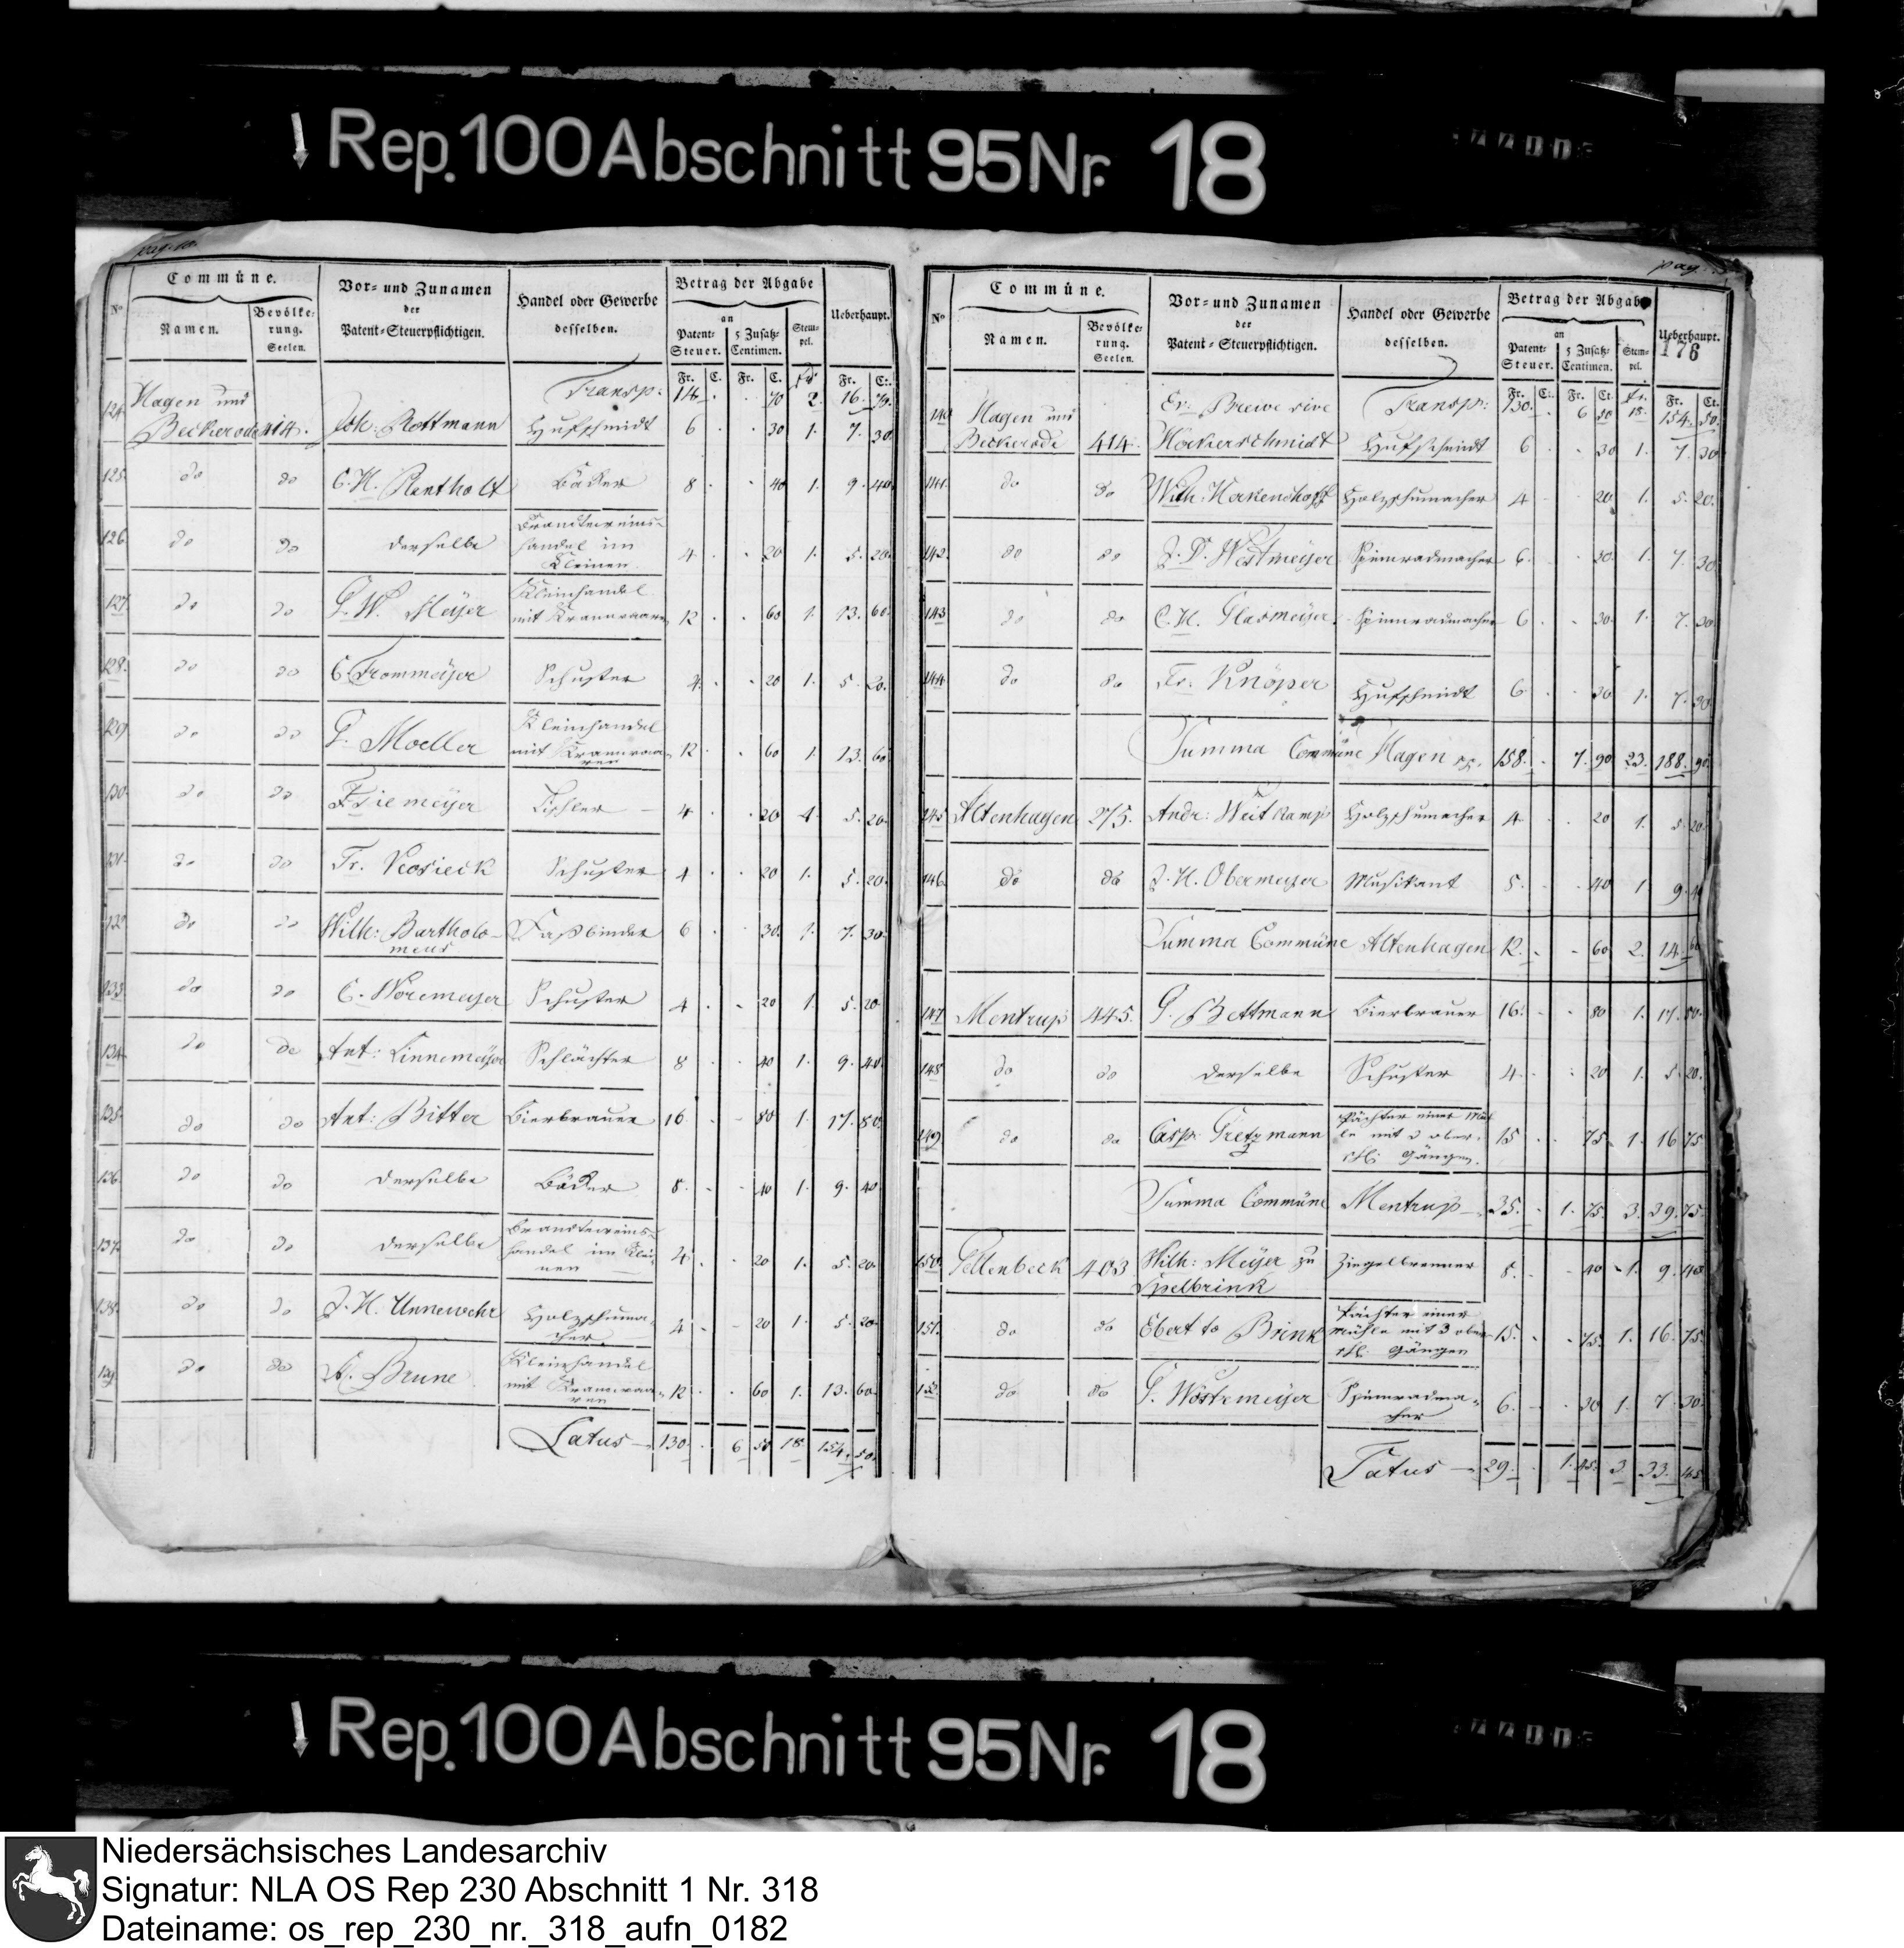 Rep. 100 Abschnitt 95 Nr. 18
pag. 10.
Commüne. Vor- und Zunamen der Patent-Steuerpflichtigen. Handel oder Gewerbe desselben. Betrag der Abgabe Ueberhaupt.
No Namen. Bevölkerung. Seelen. an Patent-Steuer. 5 Zusatz-Centimen. Stempel.
Fr. C. Fr. C. Fr. Fr. Ct.
Transp: 14. 70 2. 16. 70.
124 Hagen und Beckerode 414. Joh: Rottmann Hufschmidt 6 30 1. 7. 30
125. do do C. H. Rentholt Bäcker 8 40 1. 9. 40
126 do do derselbe Brandtweins-handel im Kleinen 4 20 1. 5. 20
127. do do G. W. Meÿer Kleinhandel mit Kramwaaren 12 60 1. 13. 60
128. do do C. Frommeÿer Schuster 4. 20 1. 5. 20.
129 do do G. Moeller Kleinhandel mit Kramwaaren 12 60 1. 13. 60
130 do do Tischler 4 20 1. 5. 20
131. do do Fr. Schuster 4 20 1. 5. 20.
132 do do Wilh: Bartholomeus Faßbinder 6 30. 1. 7. 30.
133 do do C. Schuster 4 20 1. 5. 20
134 do do Ant: Linnemeÿer Schlächter 8 40 1. 9. 40
135 do do Ant: Bitter Bierbrauer 16 80 1. 17. 80
136 do do derselbe Bäcker 8. 40 1. 9. 40
137. do do derselbe Brandtweins-handel im Kleinen 4 20 1. 5. 20
138. do do J. H. Unnewehr Holzschumacher 4 20 1. 5. 20
139 do do A. Brune Kleinhandel mit Kramwaaren 12 60 1. 13. 60
Latus 130. 6 50 18 154. 50.
pag.
176
Commüne. Vor- und Zunamen der Patent-Steuerpflichtigen. Handel oder Gewerbe desselben. Betrag der Abgabe Ueberhaupt.
No Namen. Bevölkerung. Seelen. an Patent-Steuer. 5 Zusatz-Centimen. Stempel.
Fr. C. Fr. Ct. Fr. Fr. Ct.
Transp: 130. 6 50 18. 154. 50.
140 Hagen und Beckerode 414. Hufschmidt 6 30 1. 7. 30
141. do do Wilh: Herkenhoff Holzschumacher 4 20 1. 5. 20.
142. do do Westmeÿer Spinnradmacher 6. 30. 1. 7. 30
143 do do C. H. Glasmeÿer Spinnradmacher 6 30 1. 7. 30
144 do do Fr: Knöper Hufschmidt 6 30 1. 7. 30
Summa Commüne Hagen pp. 158. 7. 90 23. 188. 90
145 Altenhagen 275. Andr: Weitkamp Holzschumacher 4 20 1. 5. 20
146 do do J. H. Obermeyer Musikant 40 1 9. 40
Summa Commüne Altenhagen 12. 60 2. 14. 60
147 Mentrup 445. G. Bettmann Bierbrauer 16. 80 1. 17. 80.
148 do do derselbe Schuster 4 20 1. 5. 20.
149 do do Casp: Gretzmann Pächter einer Mühle mit 3 oberschl: Gängen. 15 75 1. 16 75
Summa Commüne Mentrup 35. 1. 75. 3. 39. 75.
150 Gellenbeck 403 Wilh: Meÿer zu Spelbrink Ziegelbrenner 8. 40 1. 9. 40
151. do do Ebert to Brink Pächter einer Mühle mit 3 oberschl: Gängen 15. 75. 1. 16. 75.
152 do do G. Spinnradmacher 6. 30 1. 7. 30.
Latus 29. 1. 45. 3. 33. 45
Rep. 100 Abschnitt 95 Nr. 18
Niedersächsisches Landesarchiv
Signatur: NLA OS Rep 230 Abschnitt 1 Nr. 318
Dateiname: os_rep_230_nr._318_aufn_0182